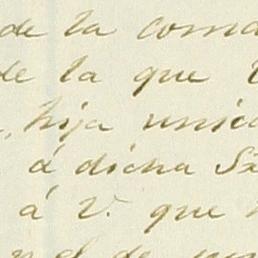 de la coma
de la que
, hija unica
á dicha Sa
á V. que